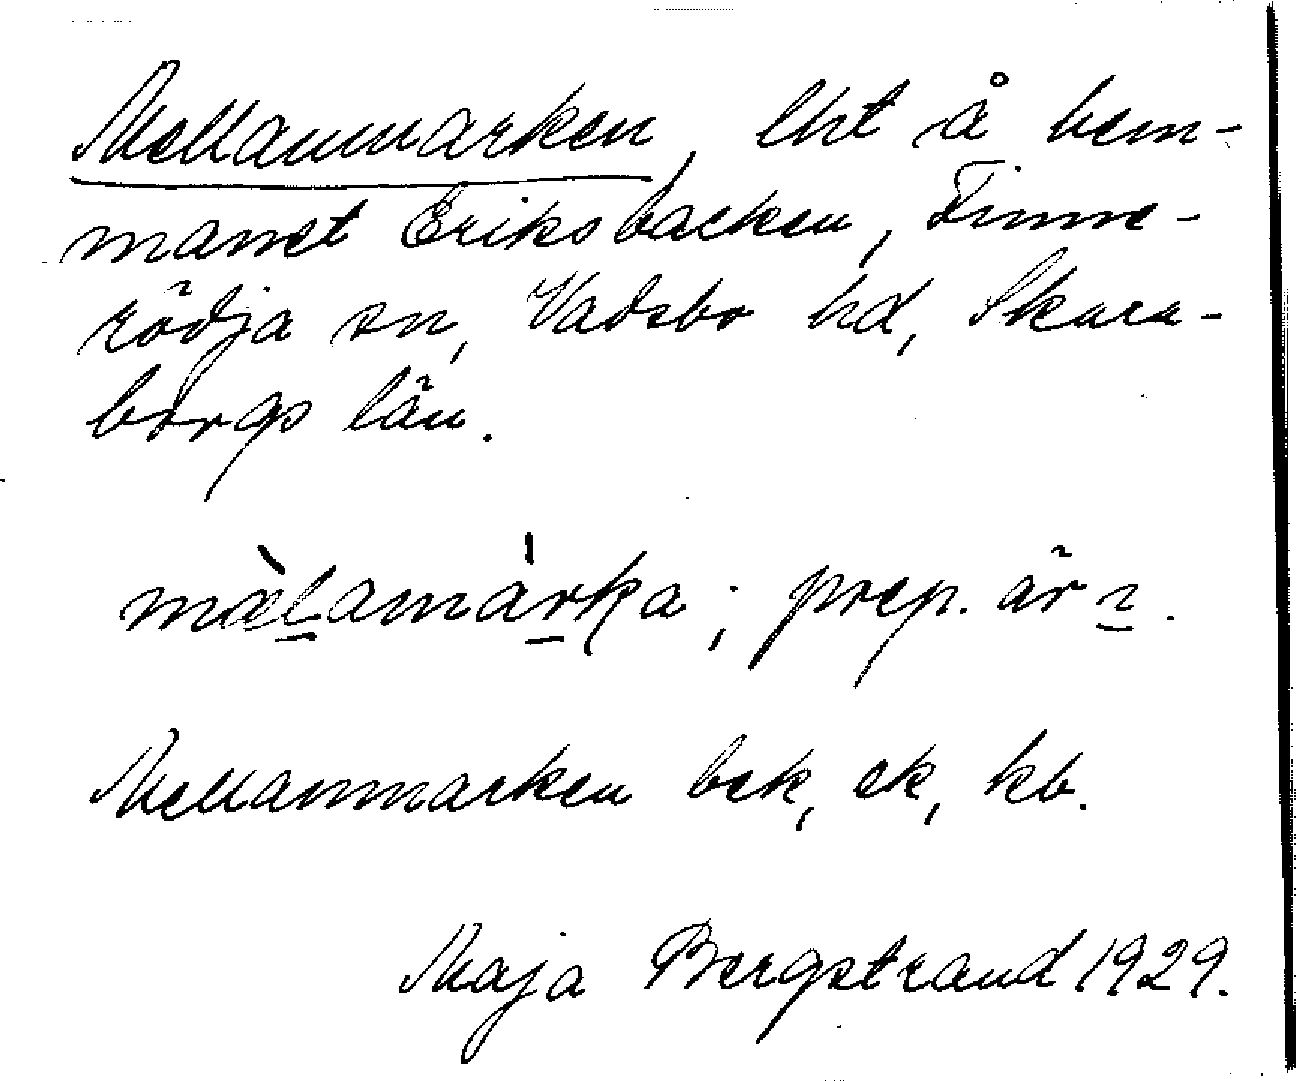 Mellanmarken, lht å hem-
manet Eriksbacken, Finne-
rödja sn, Vadsbo hd, Skara-
borgs län.
mæ̀lamárka; prep. är ı.
Mellanmarken bek, ek, kb.
Maja Bergstrand 1929.